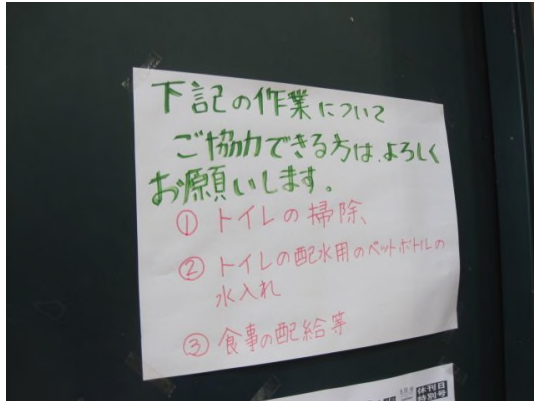 下記の作業について
ご協力できる方は、よろしく
お願いします。
① トイレの掃除、
② トイレの配水用のペットボトルの
水入れ
③ 食事の配給等
休刊日
特別号